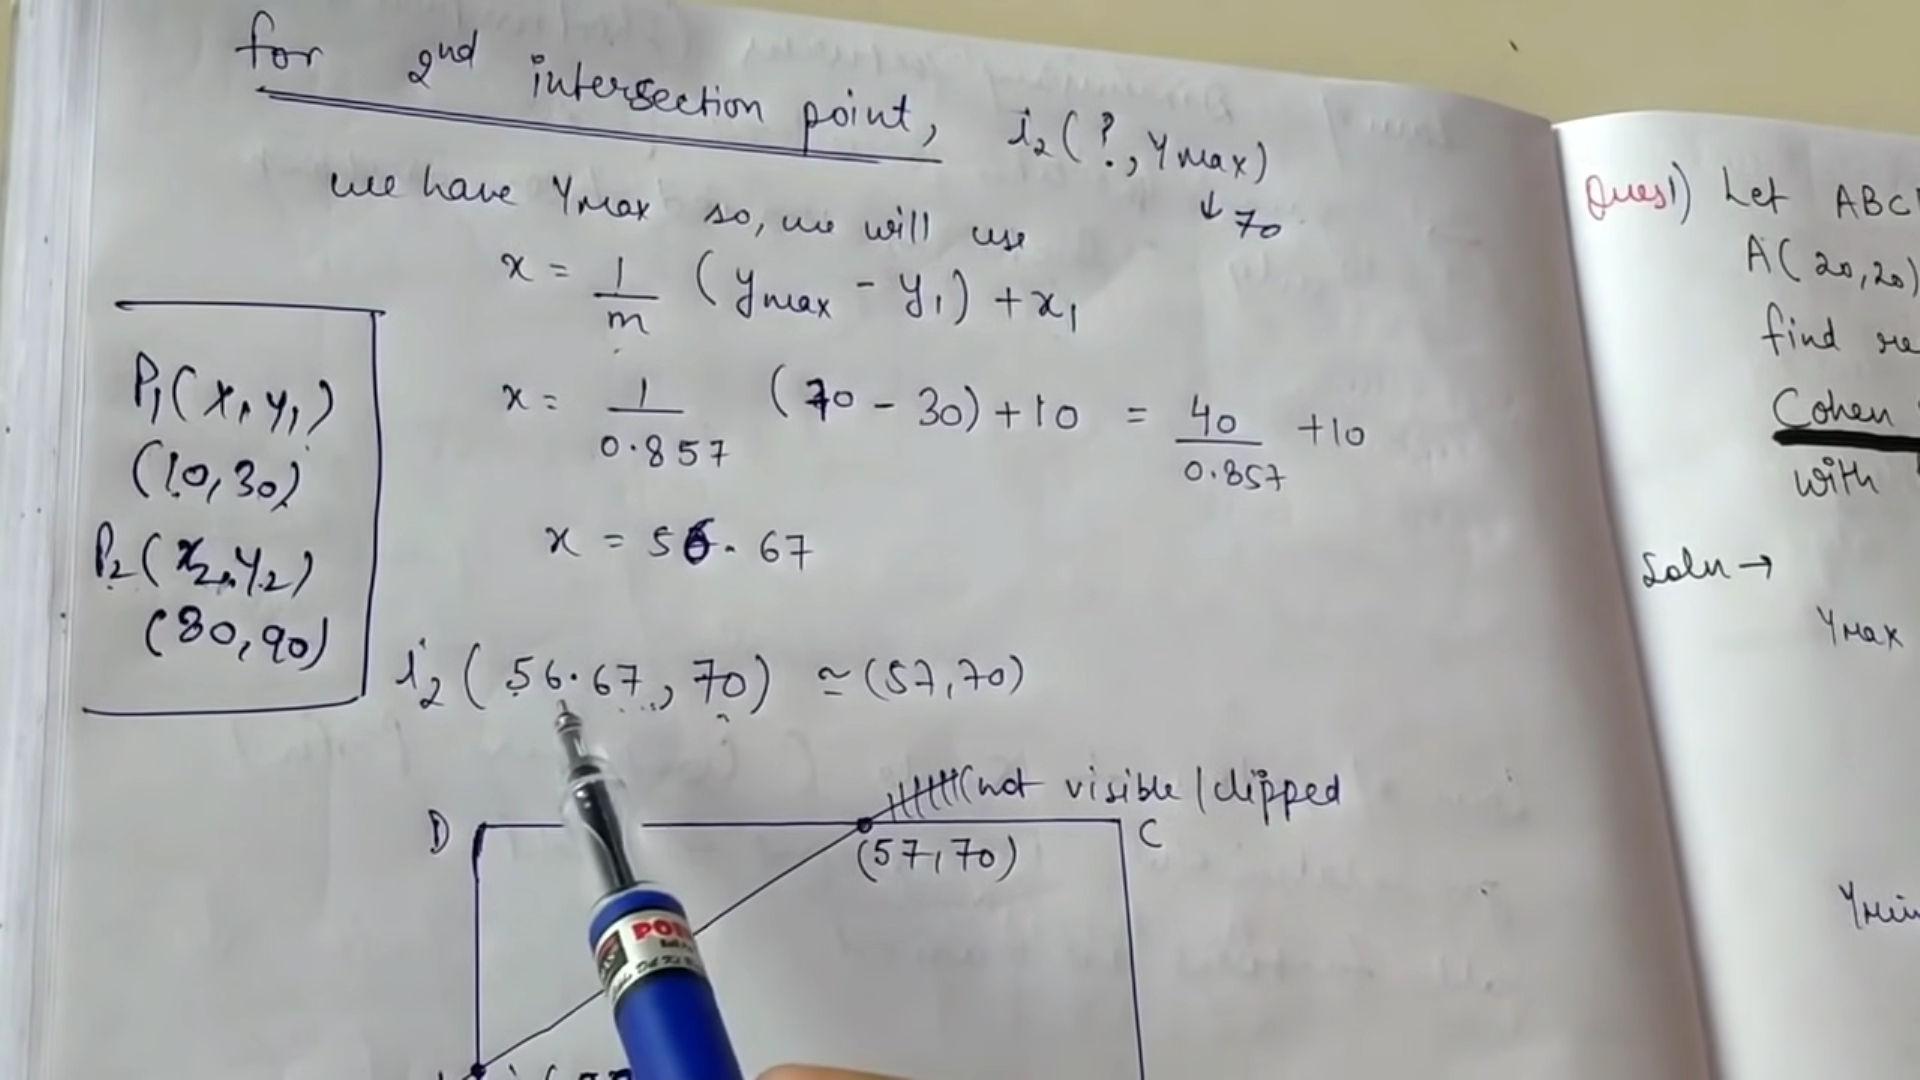 for 2nd intersection point, i2(?, Ymax)
↓ 70
we have Ymax so, we will use
x = 1/m (ymax - y1) + x1
x = 1/0.857 (70 - 30) + 10 = 40/0.857 + 10
x = 56.67
P1(x1, y1)
(10, 30)
P2(x2, y2)
(80, 90)
i2 (56.67, 70) ≃ (57, 70)
(not visible / clipped
D
C
(57, 70)
POI
Ques1) Let ABC
A(20,20)
find re
Cohen
with
Soln →
Ymax
Ymin